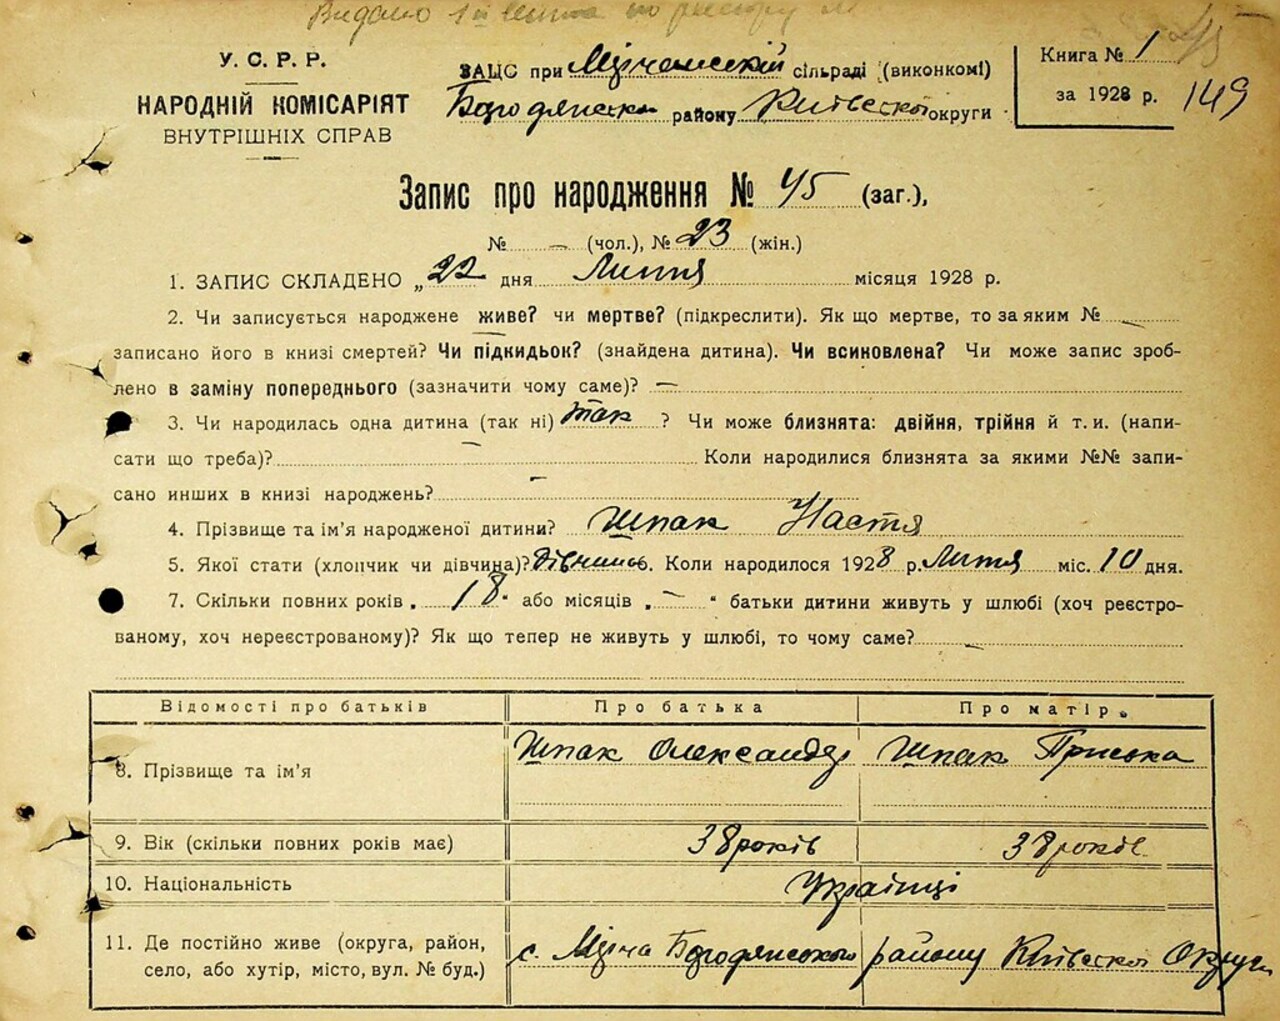 Видано
45
У. С. Р. Р.
НАРОДНІЙ КОМІСАРІЯТ
ВНУТРІШНІХ СПРАВ
ЗАЦС при сільраді (виконкомі)
району Київської округи
Книга № 1
за 1928 р. 149
Запис про народження № 45 (заг.),
№ — (чол.), № 23 (жін.)
1. ЗАПИС СКЛАДЕНО „22 дня Лютня місяця 1928 р.
2. Чи записується народжене живе? чи мертве? (підкреслити). Як що мертве, то за яким № —
записано його в книзі смертей? Чи підкидьок? (знайдена дитина). Чи всиновлена? Чи може запис зроб-
лено в заміну попереднього (зазначити чому саме)? —
3. Чи народилась одна дитина (так ні) так ? Чи може близнята: двійня, трійня й т. и. (напи-
сати що треба)? — Коли народилися близнята за якими №№ запи-
сано инших в книзі народжень? —
4. Прізвище та ім'я народженої дитини? Шпак Настя
5. Якої стати (хлопчик чи дівчина)? Коли народилося 1928 р. Лютня міс. 10 дня.
7. Скільки повних років „ 18 " або місяців „ — " батьки дитини живуть у шлюбі (хоч реєстро-
ваному, хоч нереєстрованому)? Як що тепер не живуть у шлюбі, то чому саме? —
Відомості про батьків Про батька Про матір
8. Прізвище та ім'я Шпак Олександр Шпак Приська
9. Вік (скільки повних років має) 38 років 38 років
10. Національність Українці
11. Де постійно живе (округа, район,
село, або хутір, місто, вул. № буд.) с. району Київської Округи